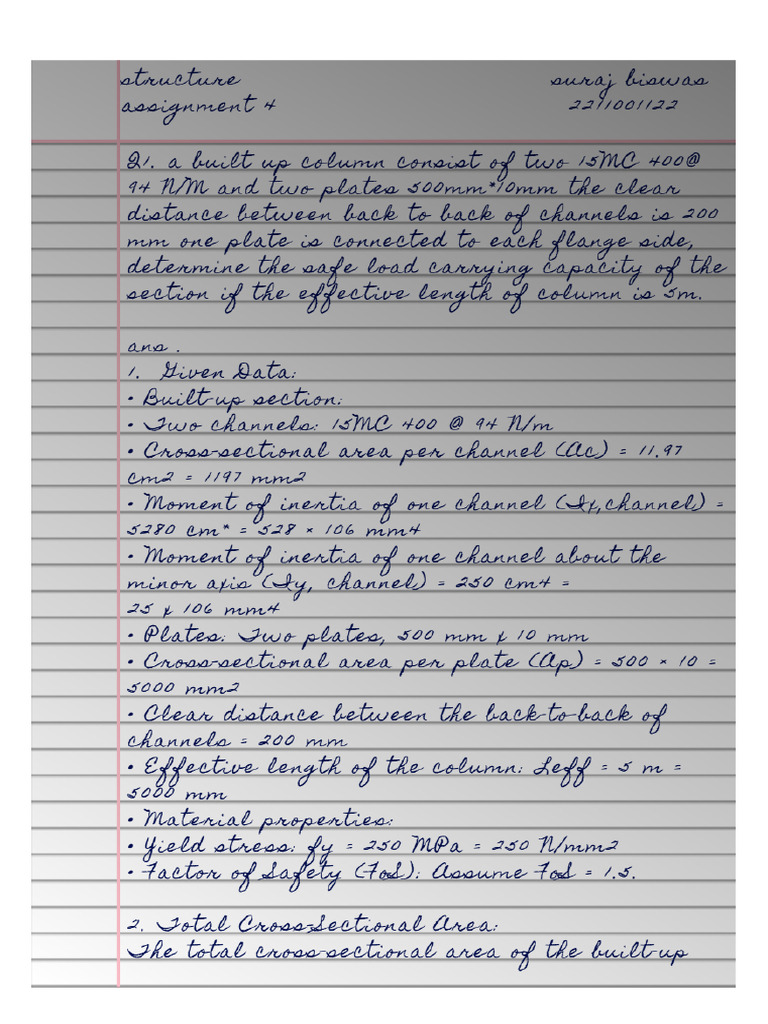 structure suraj biswas
assignment 4 2211001122
Q1. a built up column consist of two ISMC 400@
94 N/M and two plates 500mm*10mm the clear
distance between back to back of channels is 200
mm one plate is connected to each flange side,
determine the safe load carrying capacity of the
section if the effective length of column is 5m.
ans .
1. Given Data:
• Built-up section:
• Two channels: ISMC 400 @ 94 N/m
• Cross-sectional area per channel (Ac) = 11.97
cm2 = 1197 mm2
• Moment of inertia of one channel (Ix,channel) =
5280 cm* = 528 × 106 mm4
• Moment of inertia of one channel about the
minor axis (Iy, channel) = 250 cm4 =
25 x 106 mm4
• Plates: Two plates, 500 mm x 10 mm
• Cross-sectional area per plate (Ap) = 500 × 10 =
5000 mm2
• Clear distance between the back-to-back of
channels = 200 mm
• Effective length of the column: Leff = 5 m =
5000 mm
• Material properties:
• Yield stress: fy = 250 MPa = 250 N/mm2
• Factor of Safety (FoS): Assume FoS = 1.5.
2. Total Cross-Sectional Area:
The total cross-sectional area of the built-up